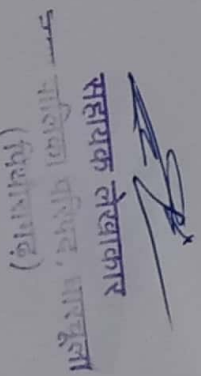 सहायक लेखाकार
पालिका परिषद, धारचूला
(पिथौरागढ़)